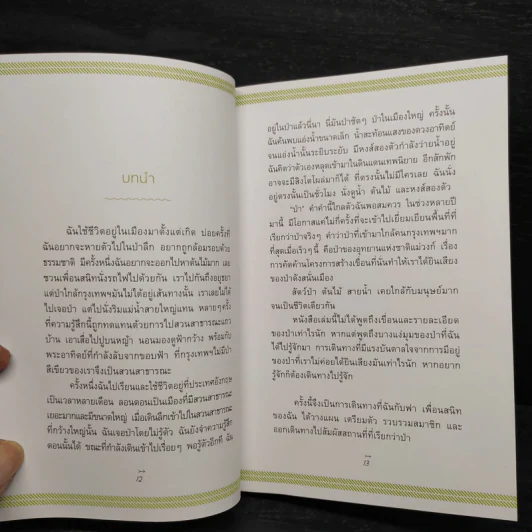 บทนำ
ฉันใช้ชีวิตอยู่ในเมืองมาตั้งแต่เกิด บ่อยครั้งที่
ฉันอยากจะหายตัวไปในป่าลึก อยากถูกล้อมรอบด้วย
ธรรมชาติ มีครั้งหนึ่งฉันอยากจะออกไปหาต้นไม้มาก เลย
ชวนเพื่อนสนิทนั่งรถไฟไปด้วยกัน เราไปกันถึงอยุธยา
แต่ป่าใกล้กรุงเทพฯมันไม่ได้อยู่เส้นทางนั้น เราเลยไม่ได้
ไปเจอป่า แต่ไปนั่งริมแม่น้ำสายใหญ่แทน หลายๆครั้ง
ที่ความรู้สึกนี้ถูกทดแทนด้วยการไปสวนสาธารณะแถว
บ้าน เอาเสื่อไปปูบนหญ้า นอนมองดูฟ้ากว้าง พร้อมกับ
พระอาทิตย์ที่กำลังลับจากขอบฟ้า ที่กรุงเทพฯไม่มีป่า
สีเขียวของเราจึงเป็นสวนสาธารณะ
ครั้งหนึ่งฉันไปเรียนและใช้ชีวิตอยู่ที่ประเทศอังกฤษ
เป็นเวลาหลายเดือน ลอนดอนเป็นเมืองที่มีสวนสาธารณะ
เยอะมากและมีขนาดใหญ่ เมื่อเดินลึกเข้าไปในสวนสาธารณะ
ที่กว้างใหญ่นั้น ฉันเจอป่าโดยไม่รู้ตัว ฉันยังจำความรู้สึก
ตอนนั้นได้ ขณะที่กำลังเดินเข้าไปเรื่อยๆ พอรู้ตัวอีกที ฉัน
12
อยู่ในป่าแล้วนี่นา นี่มันป่าชัดๆ ป่าในเมืองใหญ่ ครั้งนั้น
ฉันค้นพบแอ่งน้ำขนาดเล็ก น้ำสะท้อนแสงของดวงอาทิตย์
จนแอ่งน้ำนั้นระยิบระยับ มีหงส์สองตัวกำลังว่ายน้ำอยู่
ฉันคิดว่าตัวเองหลุดเข้ามาในดินแดนเทพนิยาย อีกสักพัก
อาจจะมีสิงโตโผล่มาก็ได้ ที่ตรงนั้นไม่มีใครเลย ฉันนั่ง
อยู่ตรงนั้นเป็นชั่วโมง นั่งดูน้ำ ต้นไม้ และหงส์สองตัว
"ป่า" คำคำนี้ไกลตัวฉันพอสมควร ในช่วงหลายปี
มานี้ มีโอกาสแค่ไม่กี่ครั้งที่จะเข้าไปเยี่ยมเยียนพื้นที่ที่
เรียกว่าป่าจริงๆ คำว่าป่าที่เข้ามาใกล้คนกรุงเทพฯมาก
ที่สุดเมื่อเร็วๆนี้ คือป่าของอุทยานแห่งชาติแม่วงก์ เรื่อง
การคัดค้านโครงการสร้างเขื่อนที่นั่นทำให้เราได้ยินเสียง
ของป่าดังสนั่นเมือง
สัตว์ป่า ต้นไม้ สายน้ำ เคยใกล้กับมนุษย์มาก
จนเป็นชีวิตเดียวกัน
หนังสือเล่มนี้ไม่ได้พูดถึงเขื่อนและรายละเอียด
ของป่าเท่าไรนัก หากแต่พูดถึงบางแง่มุมของป่าที่ฉัน
ได้ไปรู้จักมา การเดินทางที่มีแรงบันดาลใจจากการมีอยู่
ของป่าที่เราไม่ค่อยได้ยินเสียงมันเท่าไรนัก หากอยาก
รู้จักก็ต้องเดินทางไปรู้จัก
ครั้งนี้จึงเป็นการเดินทางที่ฉันกับฟา เพื่อนสนิท
ของฉัน ได้วางแผน เตรียมตัว รวบรวมสมาชิก และ
ออกเดินทางไปสัมผัสสถานที่ที่เรียกว่าป่า
13